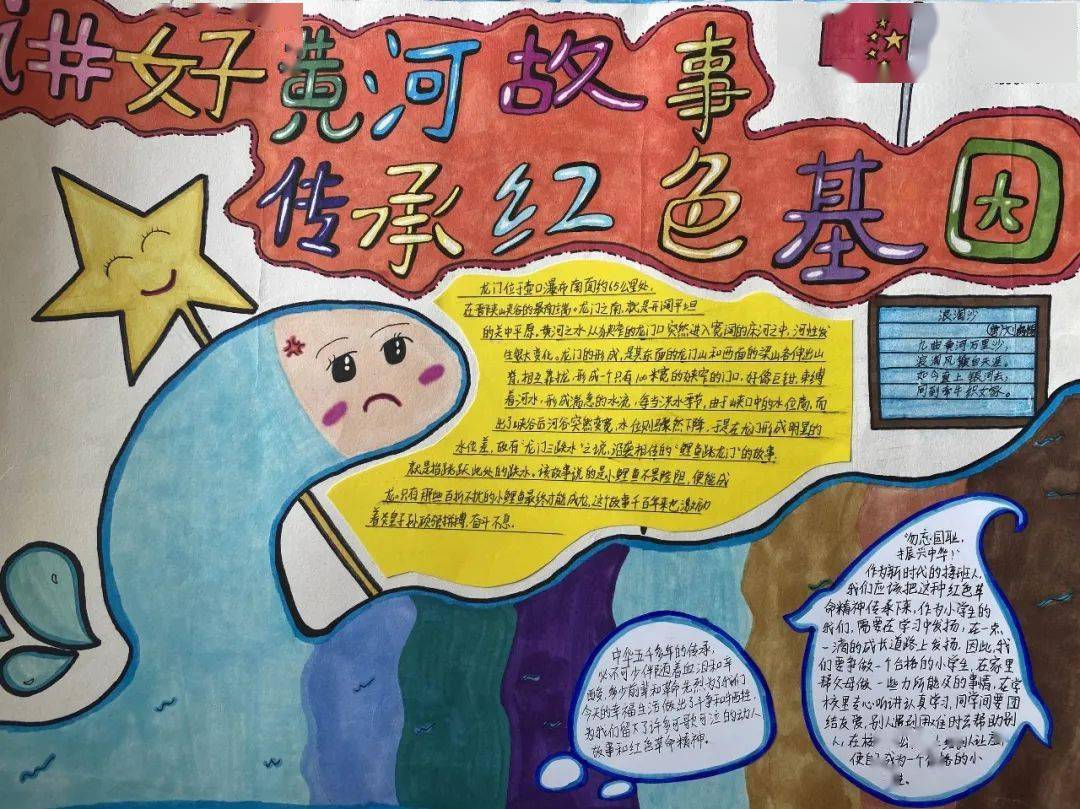 讲好黄河故事
传承红色基因
龙门位于壶口瀑布南面约65公里处,
在晋陕峡谷的最南端。龙门之南,就是开阔平坦
的关中平原,黄河之水从狭窄的龙门口突然进入宽阔的床河之中,河性发
生很大变化。龙门的形成,是其东面的龙门山和西面的梁山各伸出山
脊,相互靠拢,形成一个只有100米宽的狭窄的门口,好像巨钳,束缚
着河水,形成湍急的水流,每当洪水季节,由于峡口中的水位高,而
出了峡谷后河谷突然变宽,水位则骤然下降,于是在龙门形成明显的
水位差,故有"龙门三跌水"之说,沿袭相传的"鲤鱼跳龙门"的故事,
就是指跳跃此处的跌水。该故事说的是小鲤鱼不畏险阻,便能成
龙。只有那些百折不扰的小鲤鱼最终才能成龙,这个故事千百年来也激励
着炎黄子孙顽强拼搏,奋斗不息。
浪淘沙
九曲黄河万里沙,
浪淘风簸自天涯。
如今直上银河去,
同到牵牛织女家。
中华五千多年的传承,
必不可少伴随着血泪和辛
酸,多少前辈和革命先烈为了我们
今天的幸福生活做出了斗争和牺牲,
为我们留下了许多可歌可泣的动人
故事和红色革命精神。
"勿忘国耻,
振兴中华!"
作为新时代的接班人,
我们应该把这种红色革
命精神传承下来,作为小学生的
我们,需要在学习中发扬,在一点
一滴的成长道路上发扬,因此,我
们要争做一个合格的小学生,在家里
帮父母做一些力所能及的事情,在学
校里专心听讲认真学习,同学间要团
结友爱,别人遇到困难时去帮助别
人,在
使自 成为一个 的小
生。